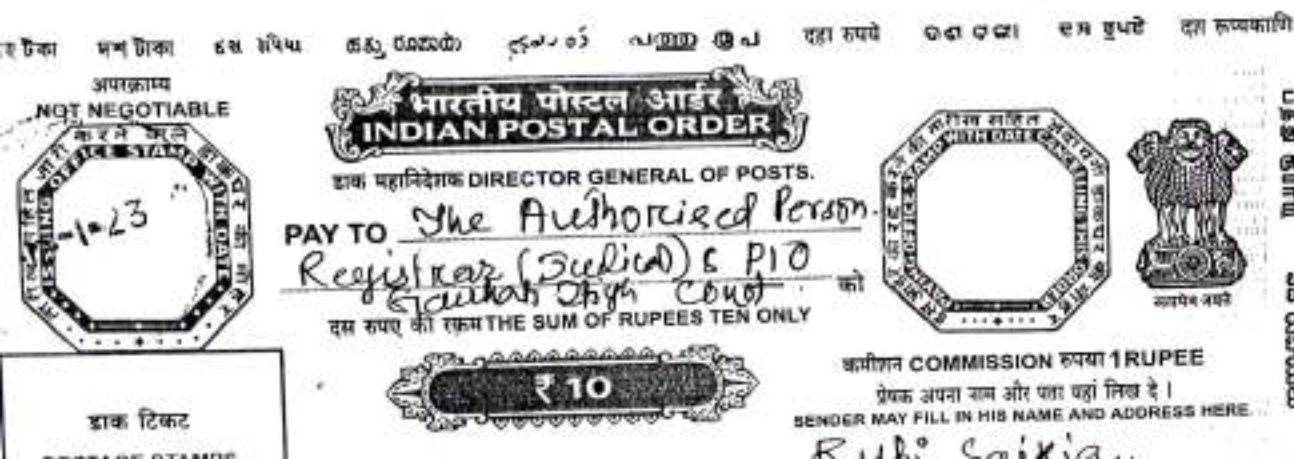 टका দশ টাকা દસ રૂપિયા ಹತ್ತು ರೂಪಾಯಿ दहा रुपये ਦਸ ਰੁਪਏ दश रूप्यकाणि
अपरक्राम्य
NOT NEGOTIABLE
भारतीय पोस्टल आर्डर
INDIAN POSTAL ORDER
डाक महानिदेशक DIRECTOR GENERAL OF POSTS.
-1-23
PAY TO The Authorised Person.
Registrar (Judicial) & PIO
Gauhati High Court को
सत्यमेव जयते
दस रुपए की रकम THE SUM OF RUPEES TEN ONLY
₹ 10
कमीशन COMMISSION रुपया 1 RUPEE
प्रेषक अपना नाम और पता यहां लिख दे ।
SENDER MAY FILL IN HIS NAME AND ADDRESS HERE.
डाक टिकट
POSTAGE STAMPS
Rubi Saikia